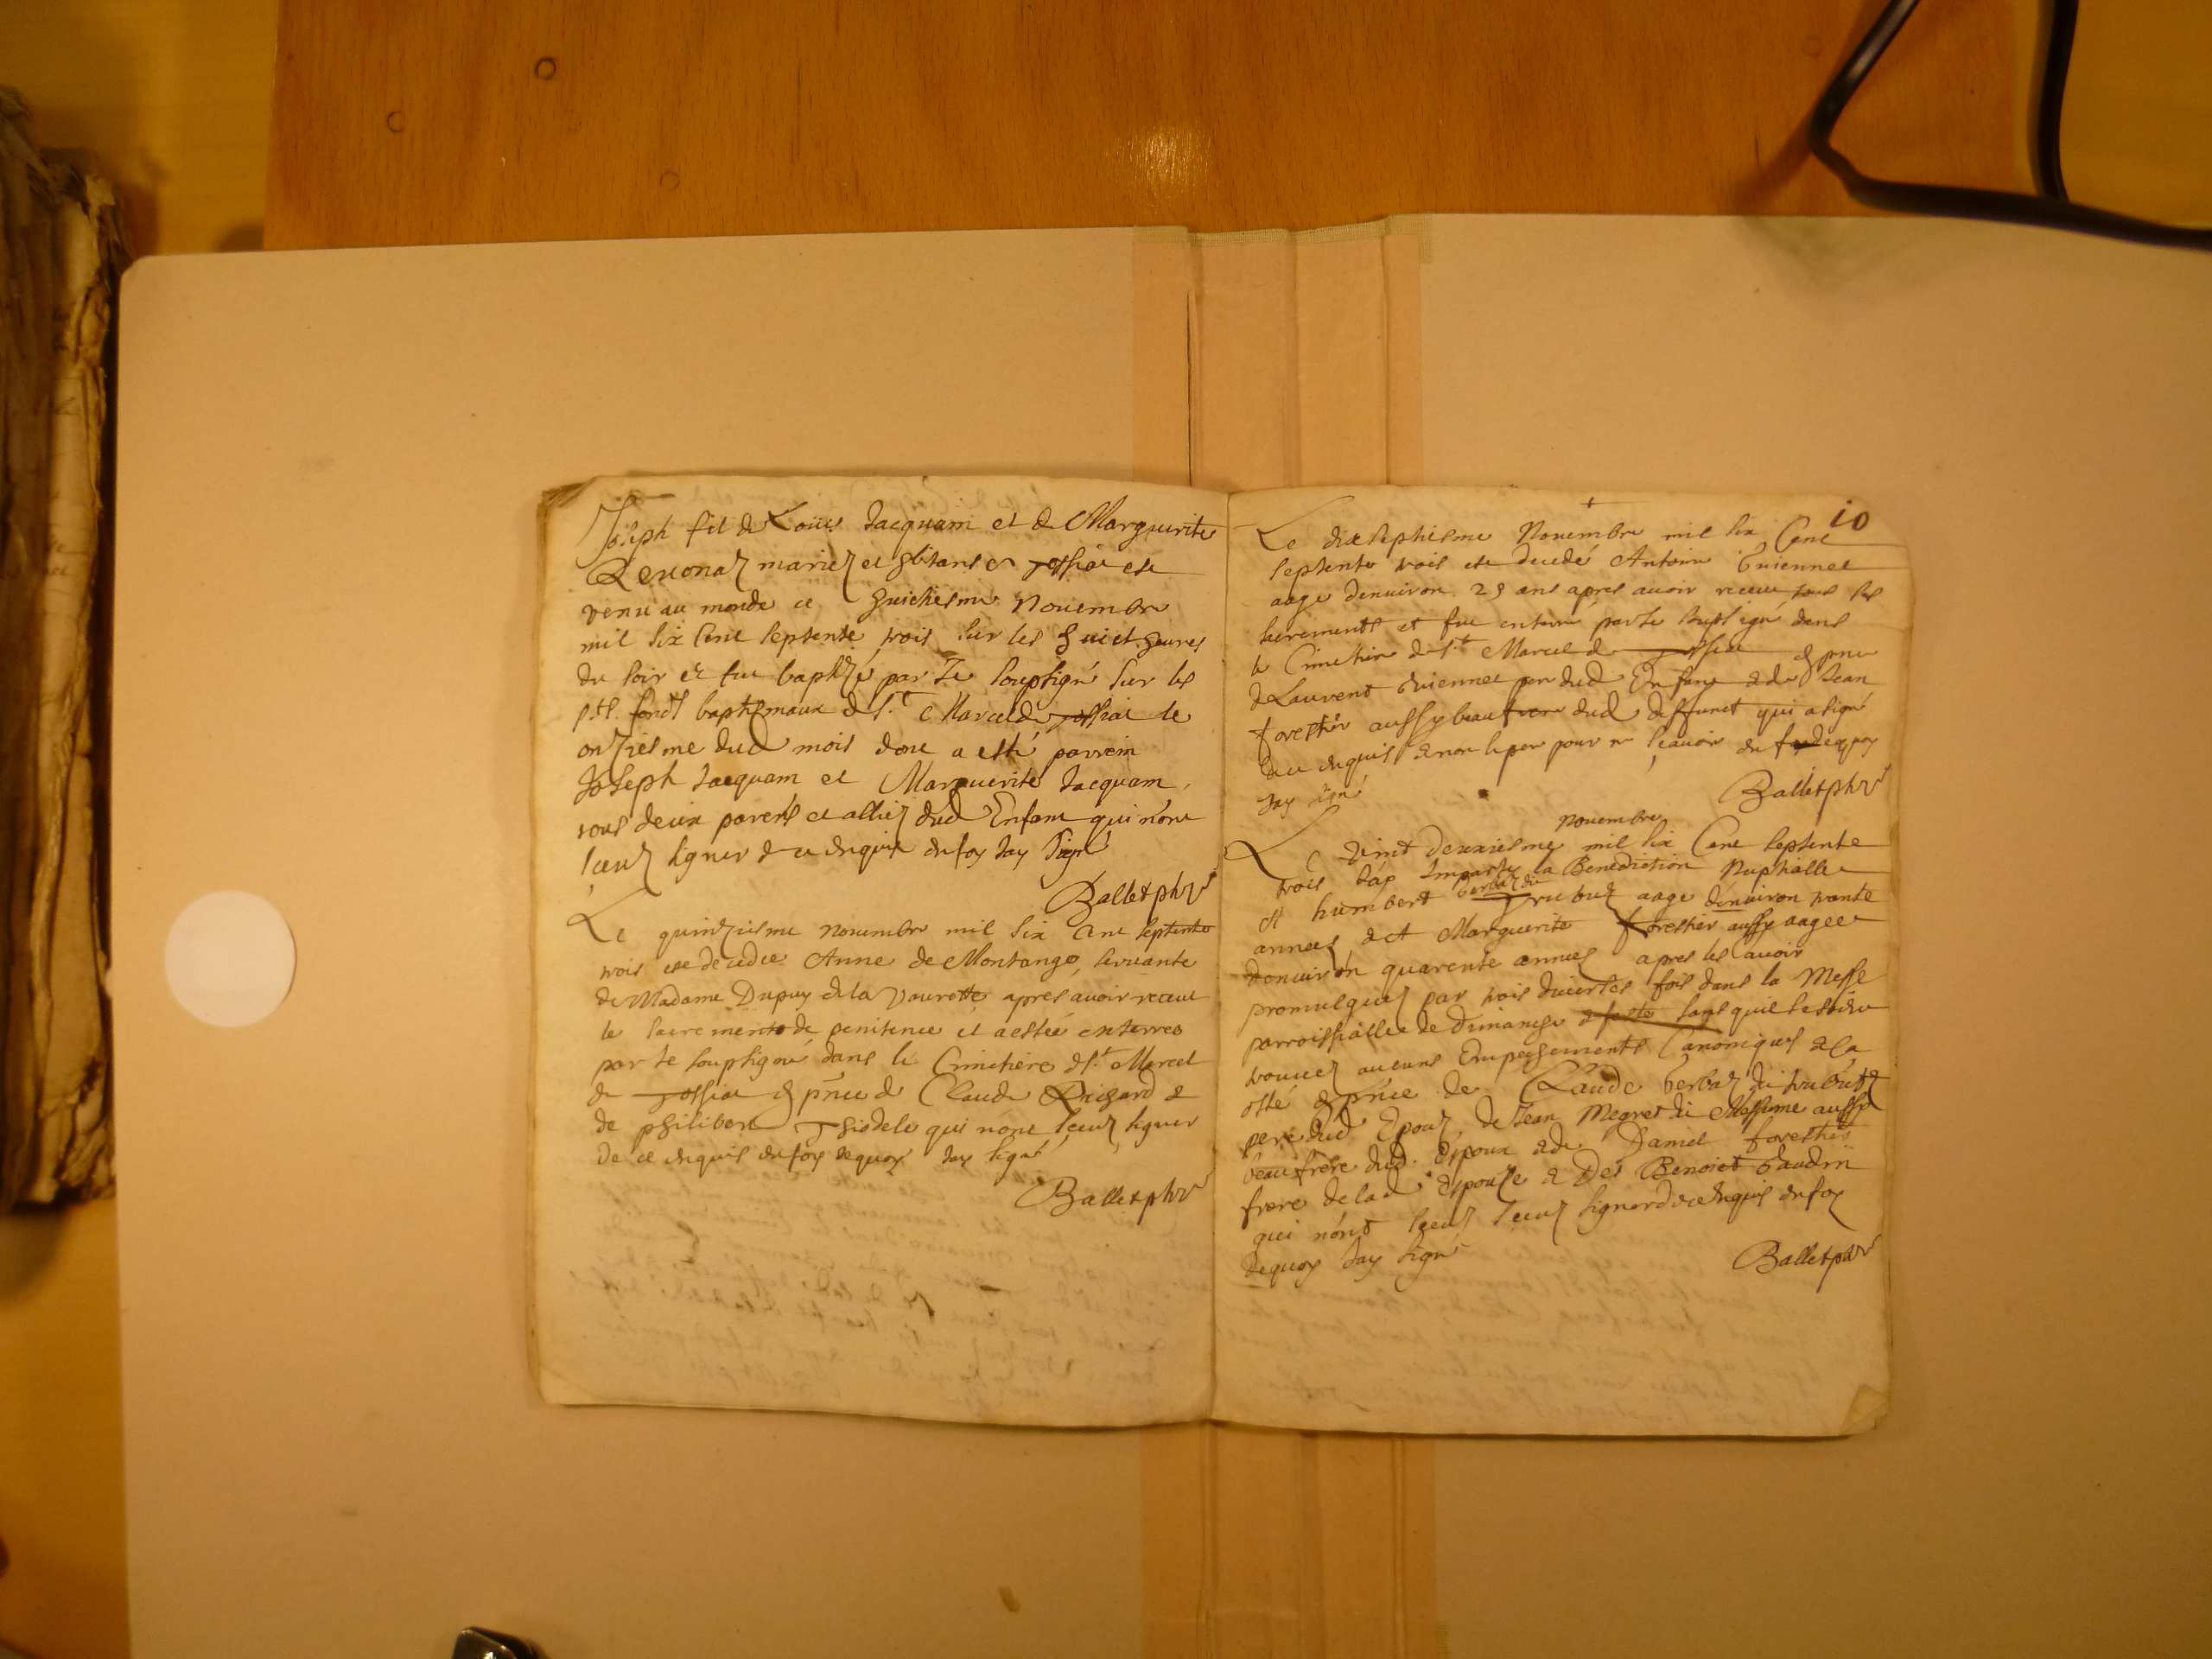 Joseph fil de Loüis Jacquam et de Marguerite
Reuonaz mariez et hbitans a Jossiat est
venu au monde ce huictiesme Nouembre
mil six cent septente trois sur les huict heures
du soir et fut baptizé par Je soupsigné sur les
sts fonds baptismaux de St Marcel de Jossiat le
onziesme dud mois dont a esté parrein
Joseph Jacquam et Marguerite Jacquam,
tous deux parens et alliez dud Enfant qui n'ont
sceuz signer de ce enquis en foy Jay signé
Ballet pbre
Le quinziesme nouembre mil six cent septente
trois est decedée Anne de Montange, seruante
de Madame Dupuy de la Vourette apres auoir receut
le sacrement de penitence et a estée enterrée
par Je soupsigné dans le Cimetiere de St Marcel
de Jossiat & pñce de Claude Richard &
de philibert Thiodele qui nont sceuz signer
de ce enquis en foy dequoy Jay signé
Ballet pbre
10
Le dixseptiesme Nouembre mil six Cent
septente trois est decedé Antoine Guiennet
aage denuiron 25 ans apres auoir receu tous les
sacrements et fut enterré par Je soupsigné dans
le Cimetiere de St Marcel de Jossiat & pnce
de Laurent Guiennet pere dud Enfant & de Jean
forestier aussy beau frere dud deffunct qui a signé
de ce enquis & non le pere pour ne sçauoir en foy dequoy
Jay signé
Ballet pbre
nouembre
Le Vint deuxiesme mil six Cent septente
trois Jay Imparty la Benediction Nuptialle
A humbert Gerbaz dit Trubuz aage denuiron trante
annees & A Marguerite forestier aussy aagee
denuiron quarente annees apres les auoir
promulguez par trois diuerses fois dans la Messe
parroissialle de Dimanche & feste sans quil se soit
trouuez aucuns Empeschements Canoniques & la
osté & pñce de Claude Gerbaz dit trubuz
pere dud Epoux de Jean Megret dit Messime aussy
beau frere dud. Epoux & de Daniel forestier
frere de lad. Epouse & Des Benoict Gaudin
qui n'ont sceuz sceuz signer de ce enquis en foy
dequoy Jay signé
Ballet pbre